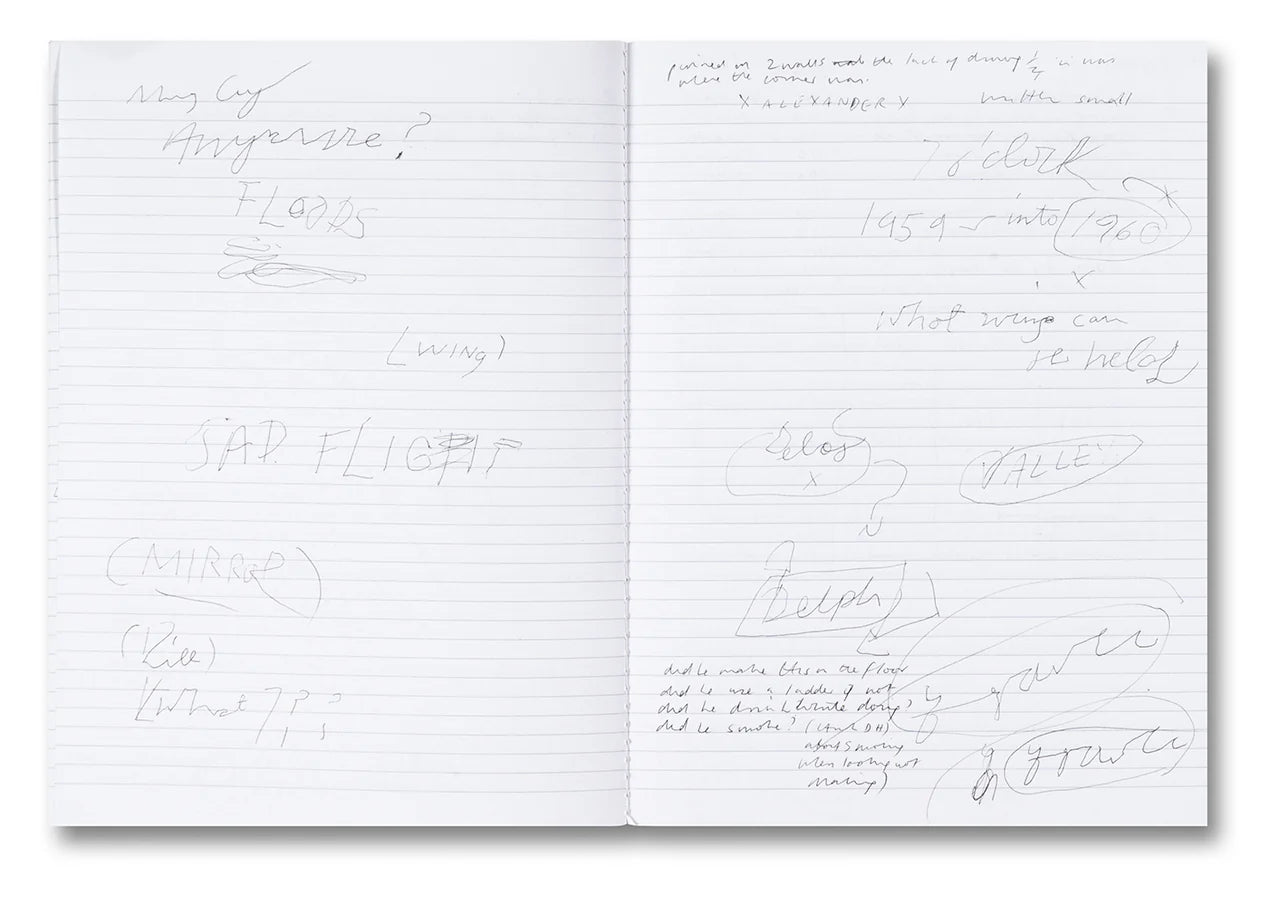 Anywhere?
FLOODS
(WING)
SAD. FLIGHT
(MIRROR)
(Kill)
(What)???
pinned on 2 walls the lack of drawing ½ in was
where the corner was.
X ALEXANDER X written small
7 o'clock
1959 into 1960 X
X
What wings can
be held
Delos
X
VALLEY
Delphi
did he make this on the floor
did he use a ladder if not
did he drink (while doing)
did he smoke? (ask DH)
about smoking
when looking not
making)